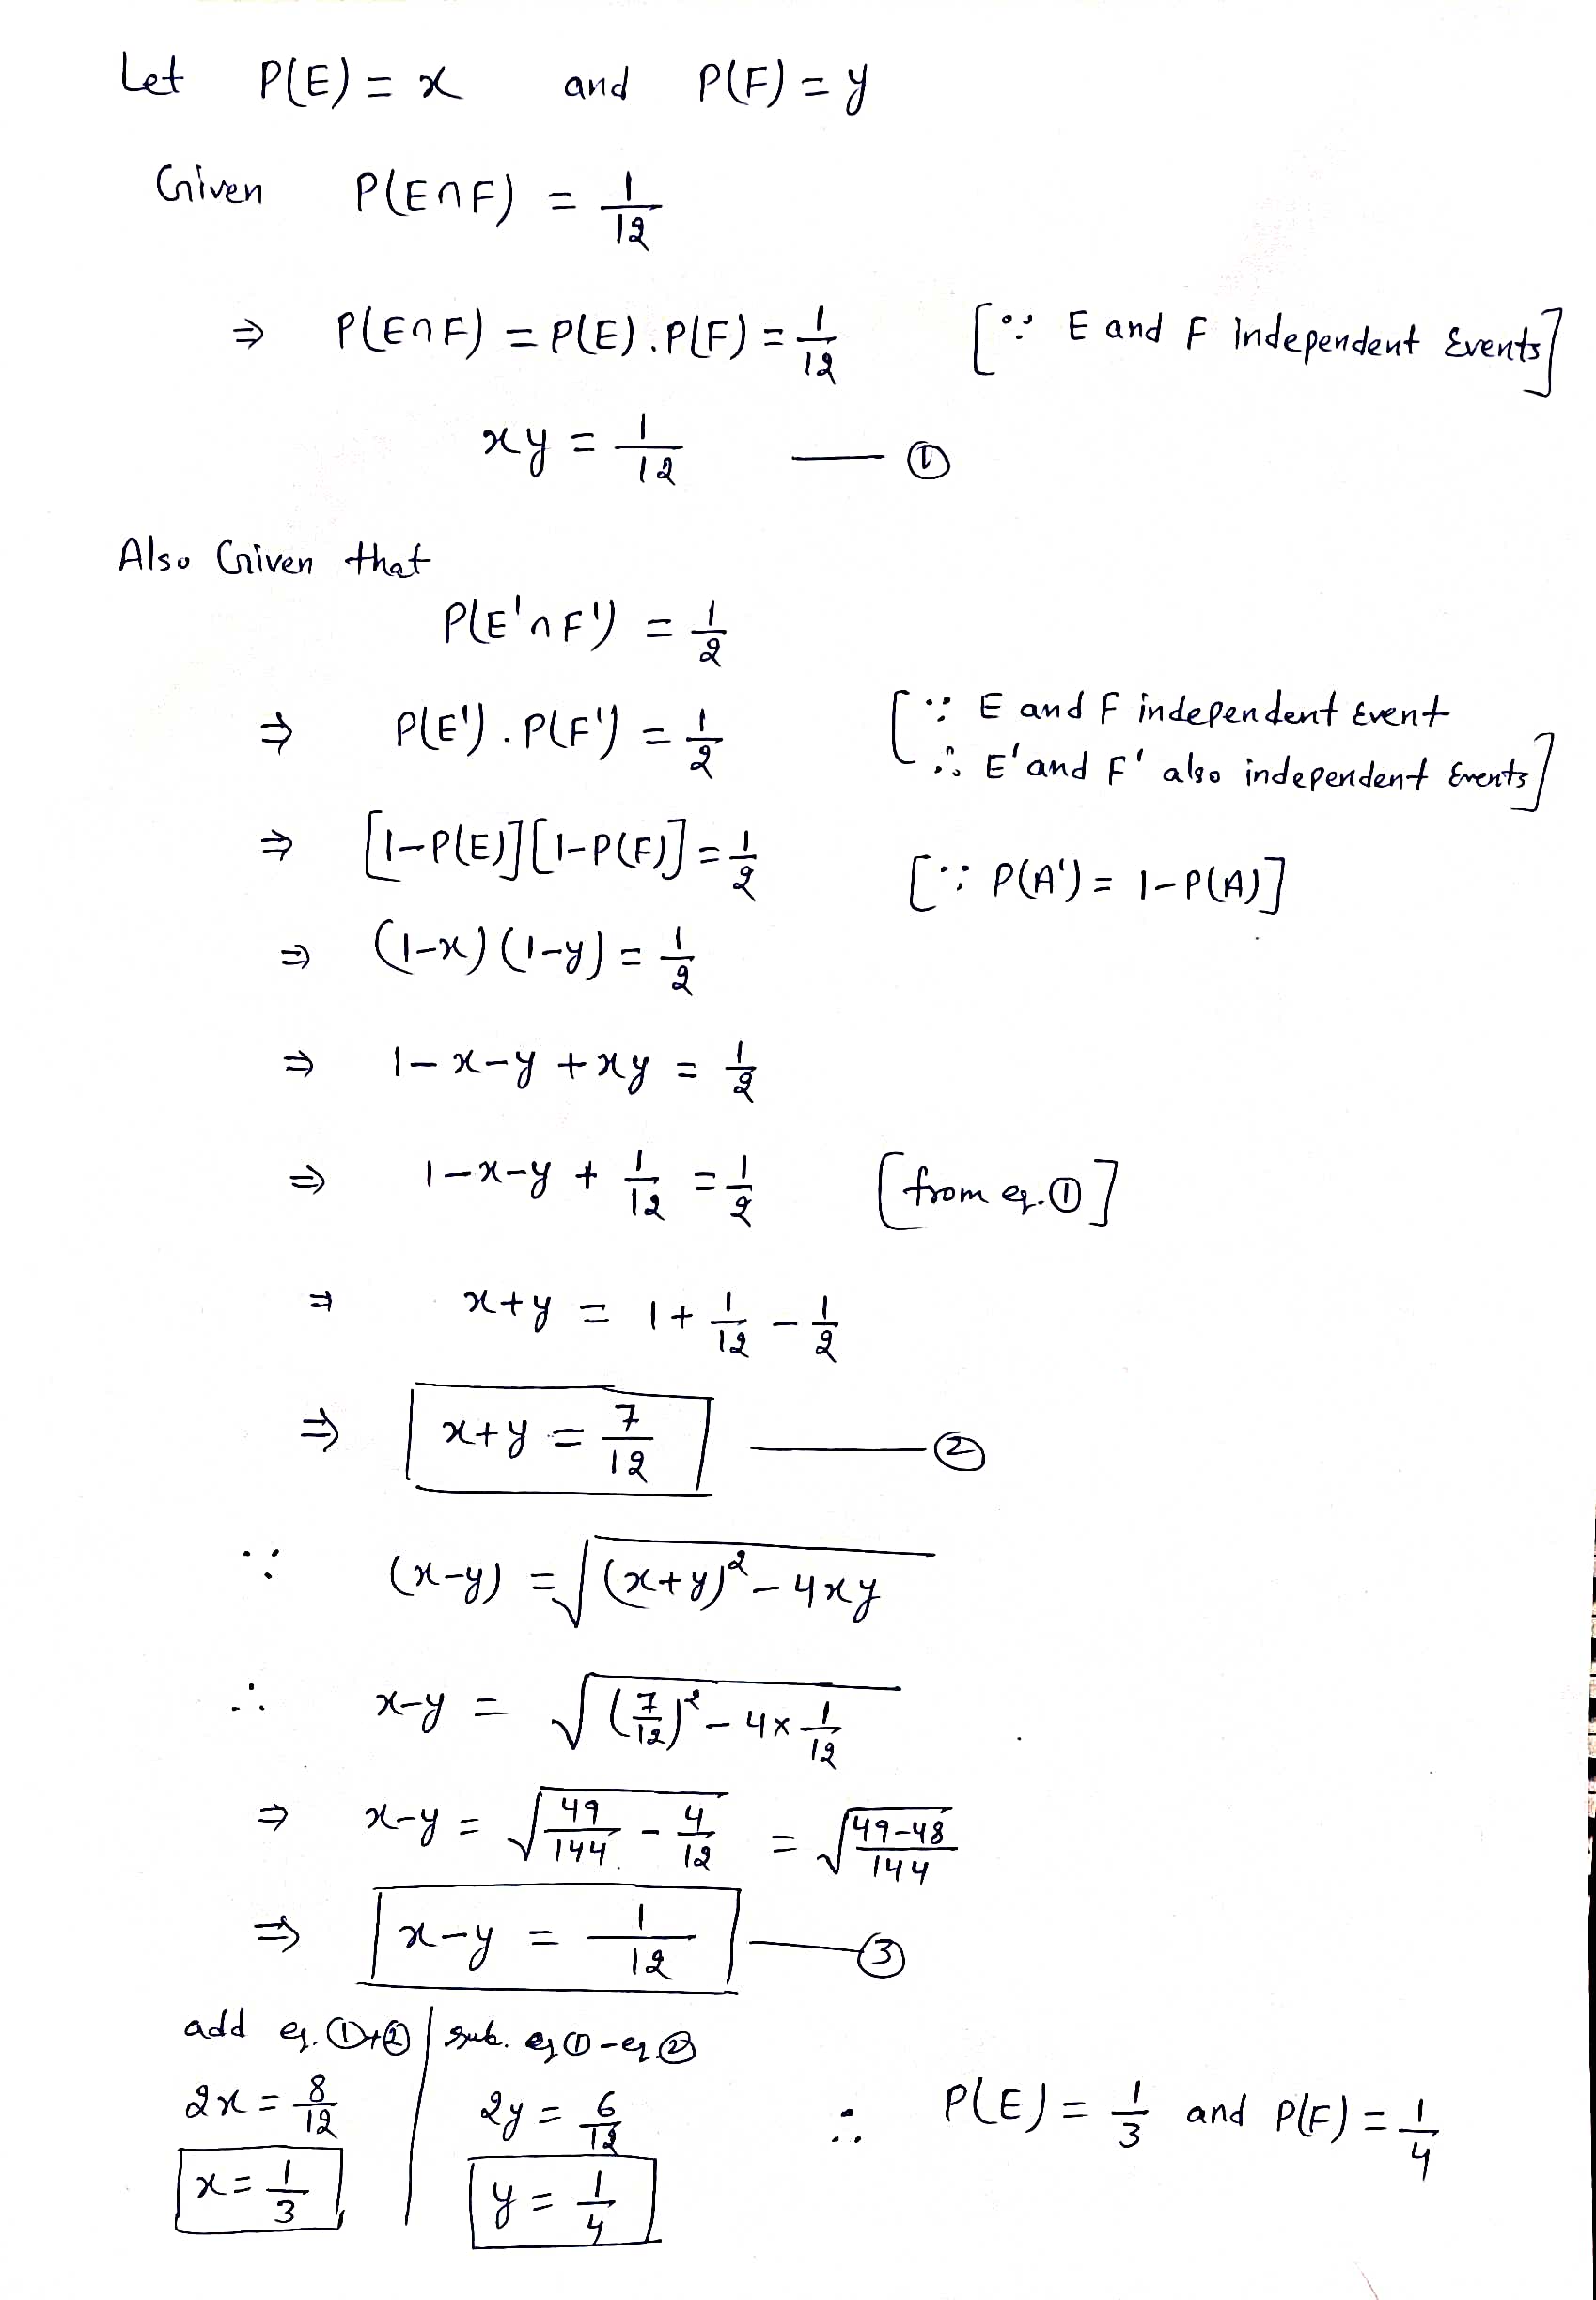 Let P(E) = x and P(F) = y
Given P(E∩F) = 1/12
⇒ P(E∩F) = P(E).P(F) = 1/12 [∵ E and F Independent Events]
xy = 1/12 —— ①
Also Given that
P(E'∩F') = 1/2
⇒ P(E').P(F') = 1/2 [∵ E and F independent Event
∴ E' and F' also independent Events]
⇒ [1-P(E)][1-P(F)] = 1/2 [∵ P(A') = 1-P(A)]
⇒ (1-x)(1-y) = 1/2
⇒ 1-x-y+xy = 1/2
⇒ 1-x-y + 1/12 = 1/2 [from eq. ①]
⇒ x+y = 1 + 1/12 - 1/2
⇒ x+y = 7/12 —— ②
∵ (x-y) = √((x+y)² - 4xy)
∴ x-y = √((7/12)² - 4×1/12)
⇒ x-y = √(49/144 - 4/12) = √((49-48)/144)
⇒ x-y = 1/12 —— ③
add eq. ①+② | sub. eq ① - eq ②
2x = 8/12 | 2y = 6/12 ∴ P(E) = 1/3 and P(F) = 1/4
x = 1/3 | y = 1/4